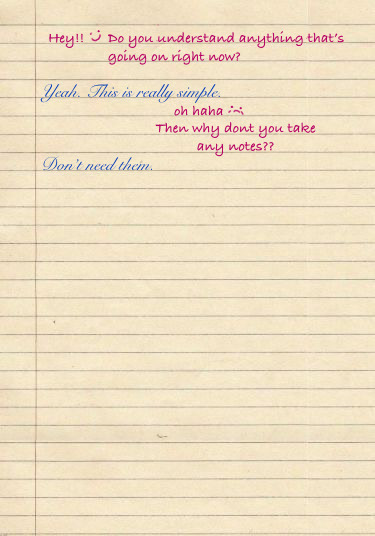 Hey!! :) Do you understand anything that's
going on right now?
Yeah. This is really simple.
oh haha :(
Then why dont you take
any notes??
Don't need them.